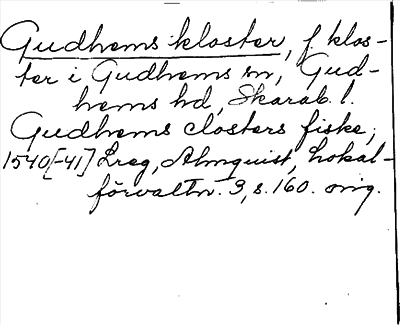 Gudhems kloster, f. klos-
ter i Gudhems sn, Gud-
hems hd, Skarab. l.
Gudhems closters fiske,
1540[-41] Lreg, Almquist, Lokal-
förvaltn. 3, s. 160. orig.